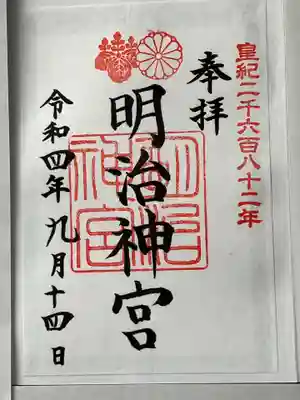 皇紀二千六百八十二年
奉拝
明治神宮
明治神宮
令和四年九月十四日